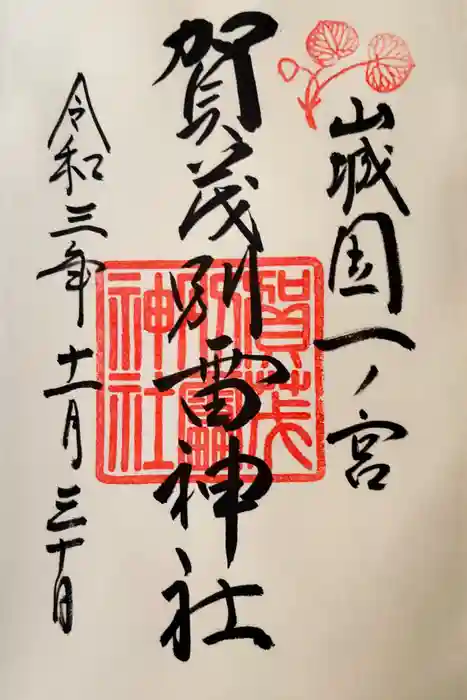 山城國一ノ宮
賀茂別雷神社
令和三年十一月三十日
賀茂
別雷
神社